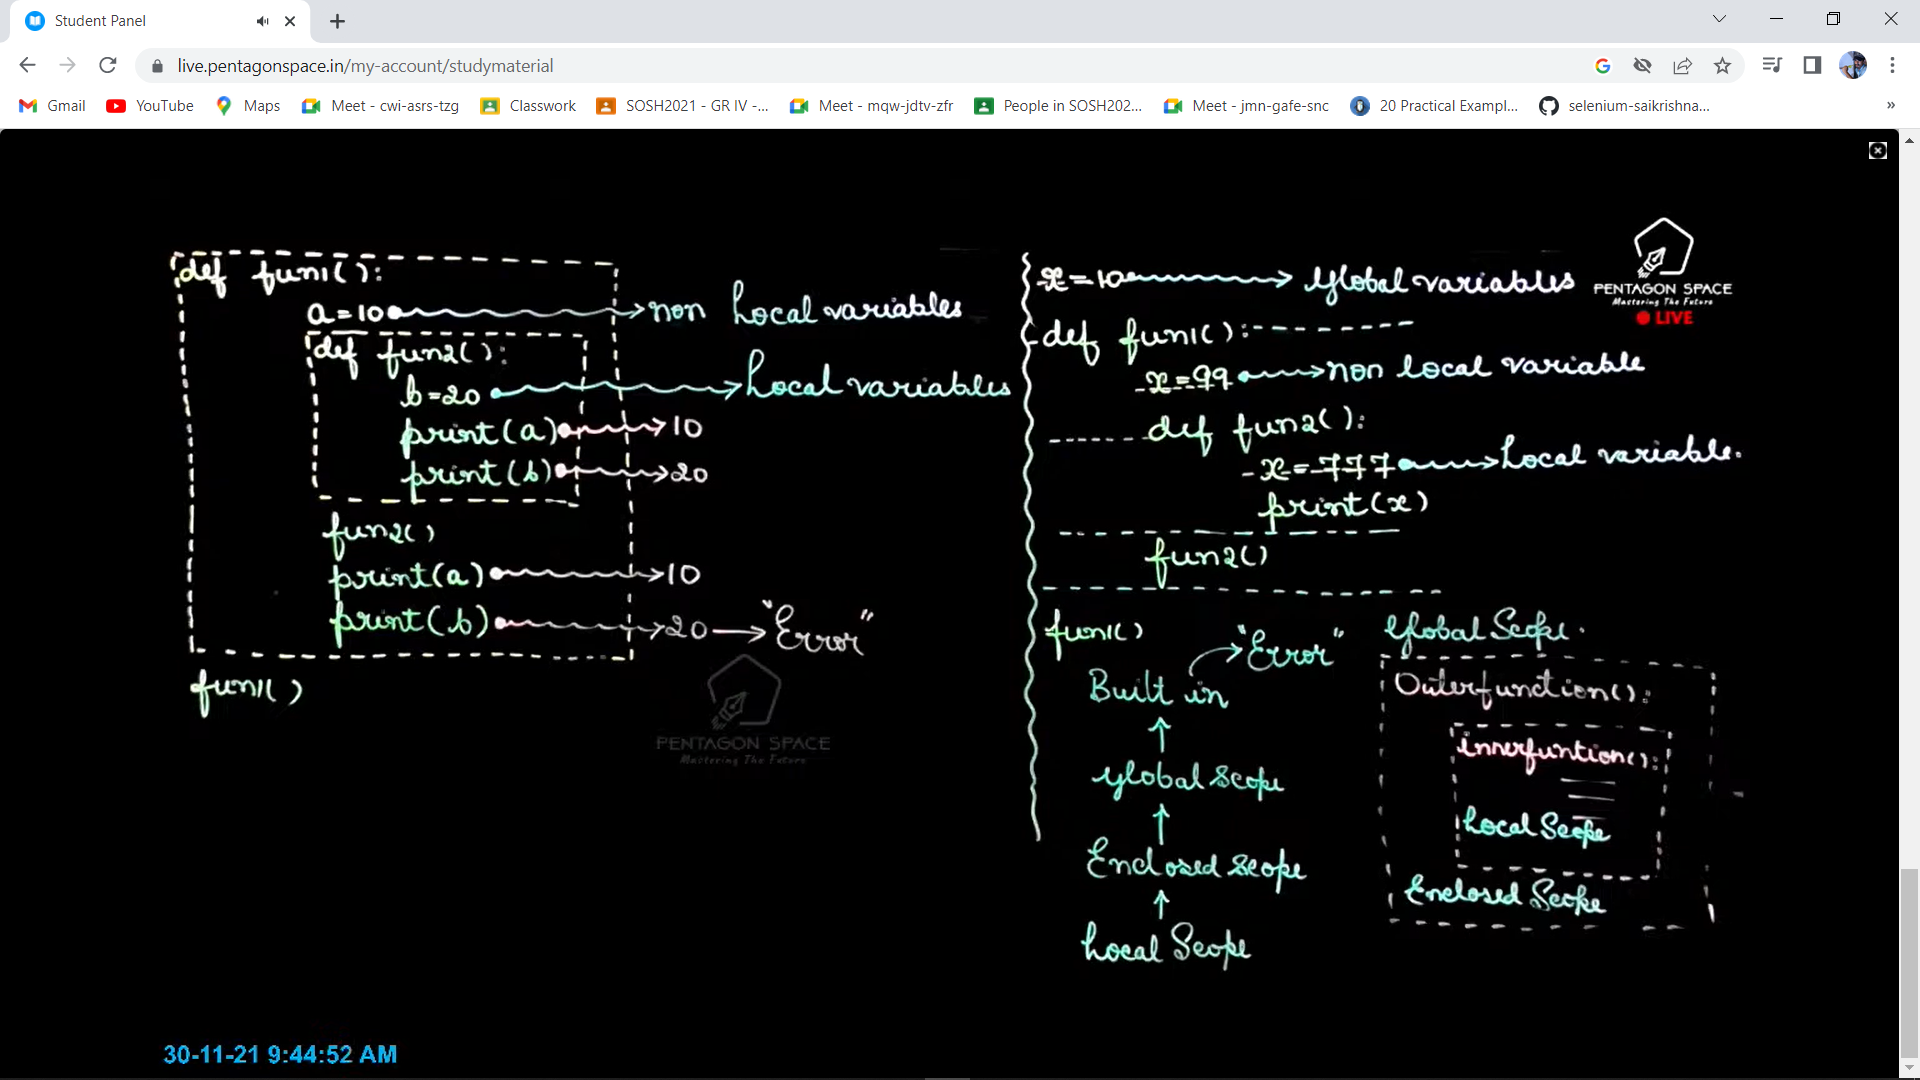 Student Panel
live.pentagonspace.in/my-account/studymaterial
Gmail YouTube Maps Meet - cwi-asrs-tzg Classwork SOSH2021 - GR IV -... Meet - mqw-jdtv-zfr People in SOSH202... Meet - jmn-gafe-snc 20 Practical Exampl... selenium-saikrishna... »
def fun1():
a=10 non Local variables
def fun2():
b=20 Local variables
print(a) 10
print(b) 20
fun2()
print(a) 10
print(b) 20 "Error"
fun1()
PENTAGON SPACE
Mastering The Future
x=10 Global variables
def fun1():
x=99 non local variable
def fun2():
x=777 Local variable.
print(x)
fun2()
fun1()
"Error"
Built in
Global Scope
Enclosed Scope
Local Scope
Global Scope.
Outerfunction():
innerfuntion():
Local Scope
Enclosed Scope
PENTAGON SPACE
Mastering The Future
LIVE
30-11-21 9:44:52 AM